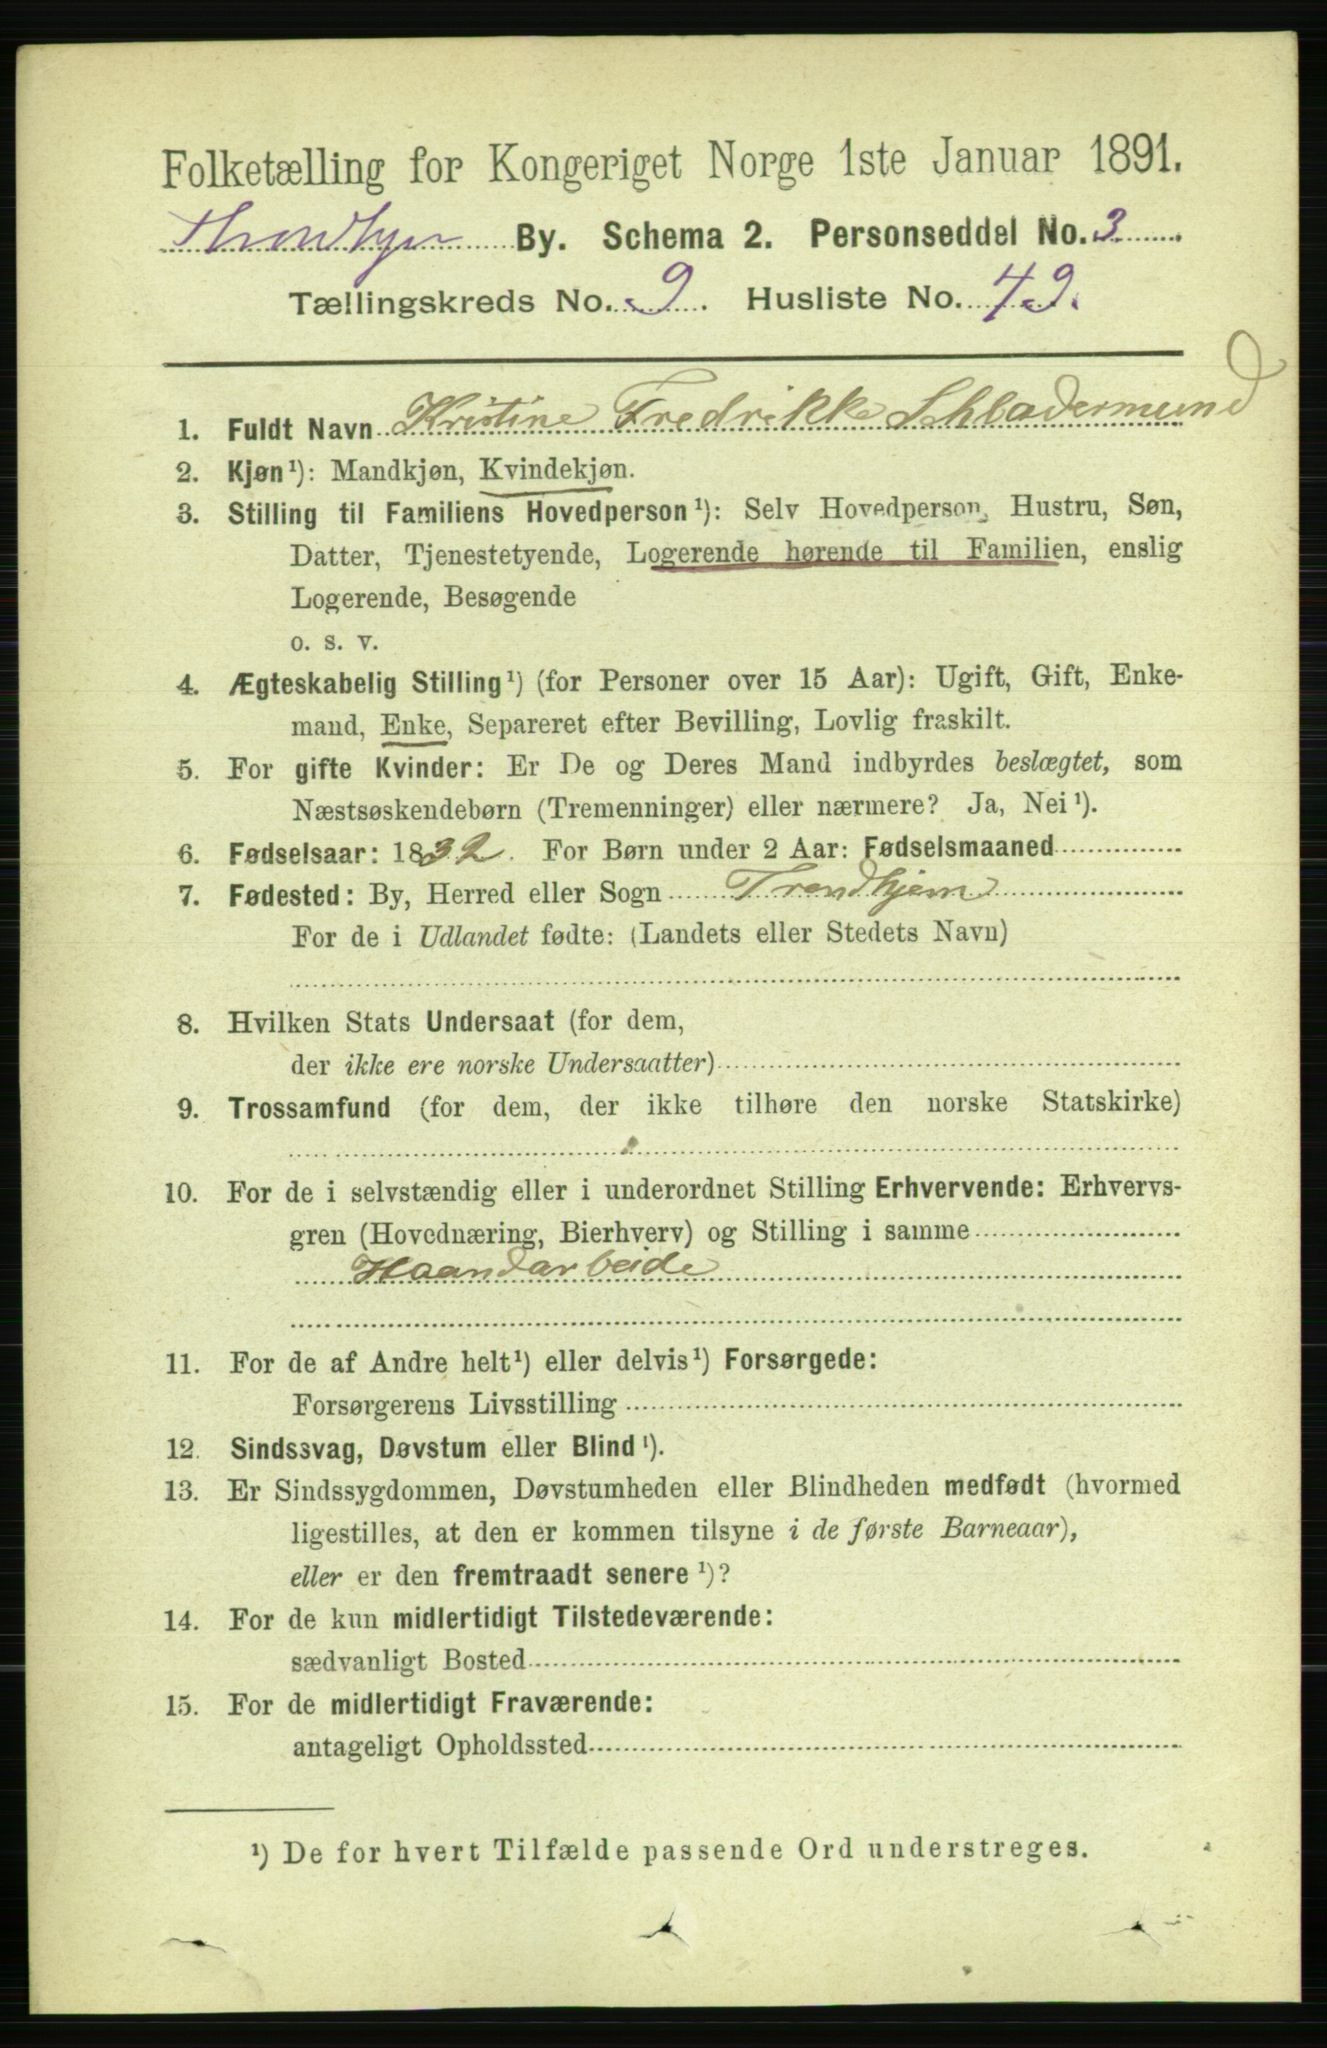 Folketælling for Kongeriget Norge 1ste Januar 1891.
Throndhjem By. Schema 2. Personseddel No. 3
Tællingskreds No. 9. Husliste No. 49.
1. Fuldt Navn Kristine Fredrikke Schladermund
2. Kjøn¹): Mandkjøn, Kvindekjøn.
3. Stilling til Familiens Hovedperson¹): Selv Hovedperson, Hustru, Søn,
Datter, Tjenestetyende, Logerende hørende til Familien, enslig
Logerende, Besøgende
o. s. v.
4. Ægteskabelig Stilling¹) (for Personer over 15 Aar): Ugift, Gift, Enke-
mand, Enke, Separeret efter Bevilling, Lovlig fraskilt.
5. For gifte Kvinder: Er De og Deres Mand indbyrdes beslægtet, som
Næstsøskendebørn (Tremenninger) eller nærmere? Ja, Nei¹).
6. Fødselsaar: 1832. For Børn under 2 Aar: Fødselsmaaned
7. Fødested: By, Herred eller Sogn Trondhjem
For de i Udlandet fødte: (Landets eller Stedets Navn)
8. Hvilken Stats Undersaat (for dem,
der ikke ere norske Undersaatter)
9. Trossamfund (for dem, der ikke tilhøre den norske Statskirke)
10. For de i selvstændig eller i underordnet Stilling Erhvervende: Erhvervs-
gren (Hovednæring, Bierhverv) og Stilling i samme
Haandarbeide
11. For de af Andre helt¹) eller delvis¹) Forsørgede:
Forsørgerens Livsstilling
12. Sindssvag, Døvstum eller Blind¹).
13. Er Sindssygdommen, Døvstumheden eller Blindheden medfødt (hvormed
ligestilles, at den er kommen tilsyne i de første Barneaar),
eller er den fremtraadt senere¹)?
14. For de kun midlertidigt Tilstedeværende:
sædvanligt Bosted
15. For de midlertidigt Fraværende:
antageligt Opholdssted
¹) De for hvert Tilfælde passende Ord understreges.